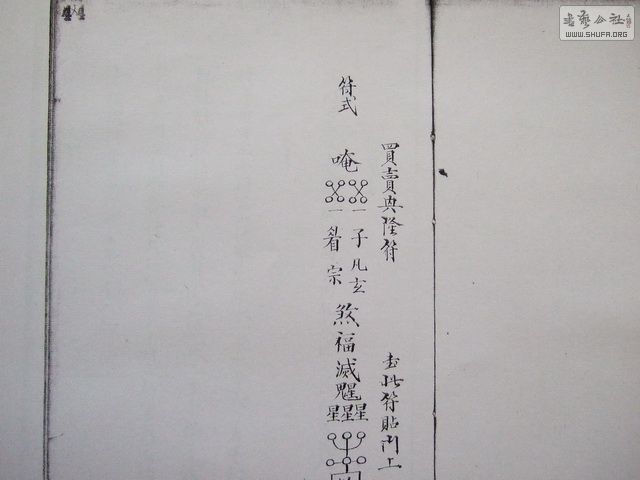 買賣典隆符
書此符貼門上
符式
唵
一 一
子 凡 玄
宗
煞
福
滅
魁
星星星
書藝公社
WWW.SHUFA.ORG